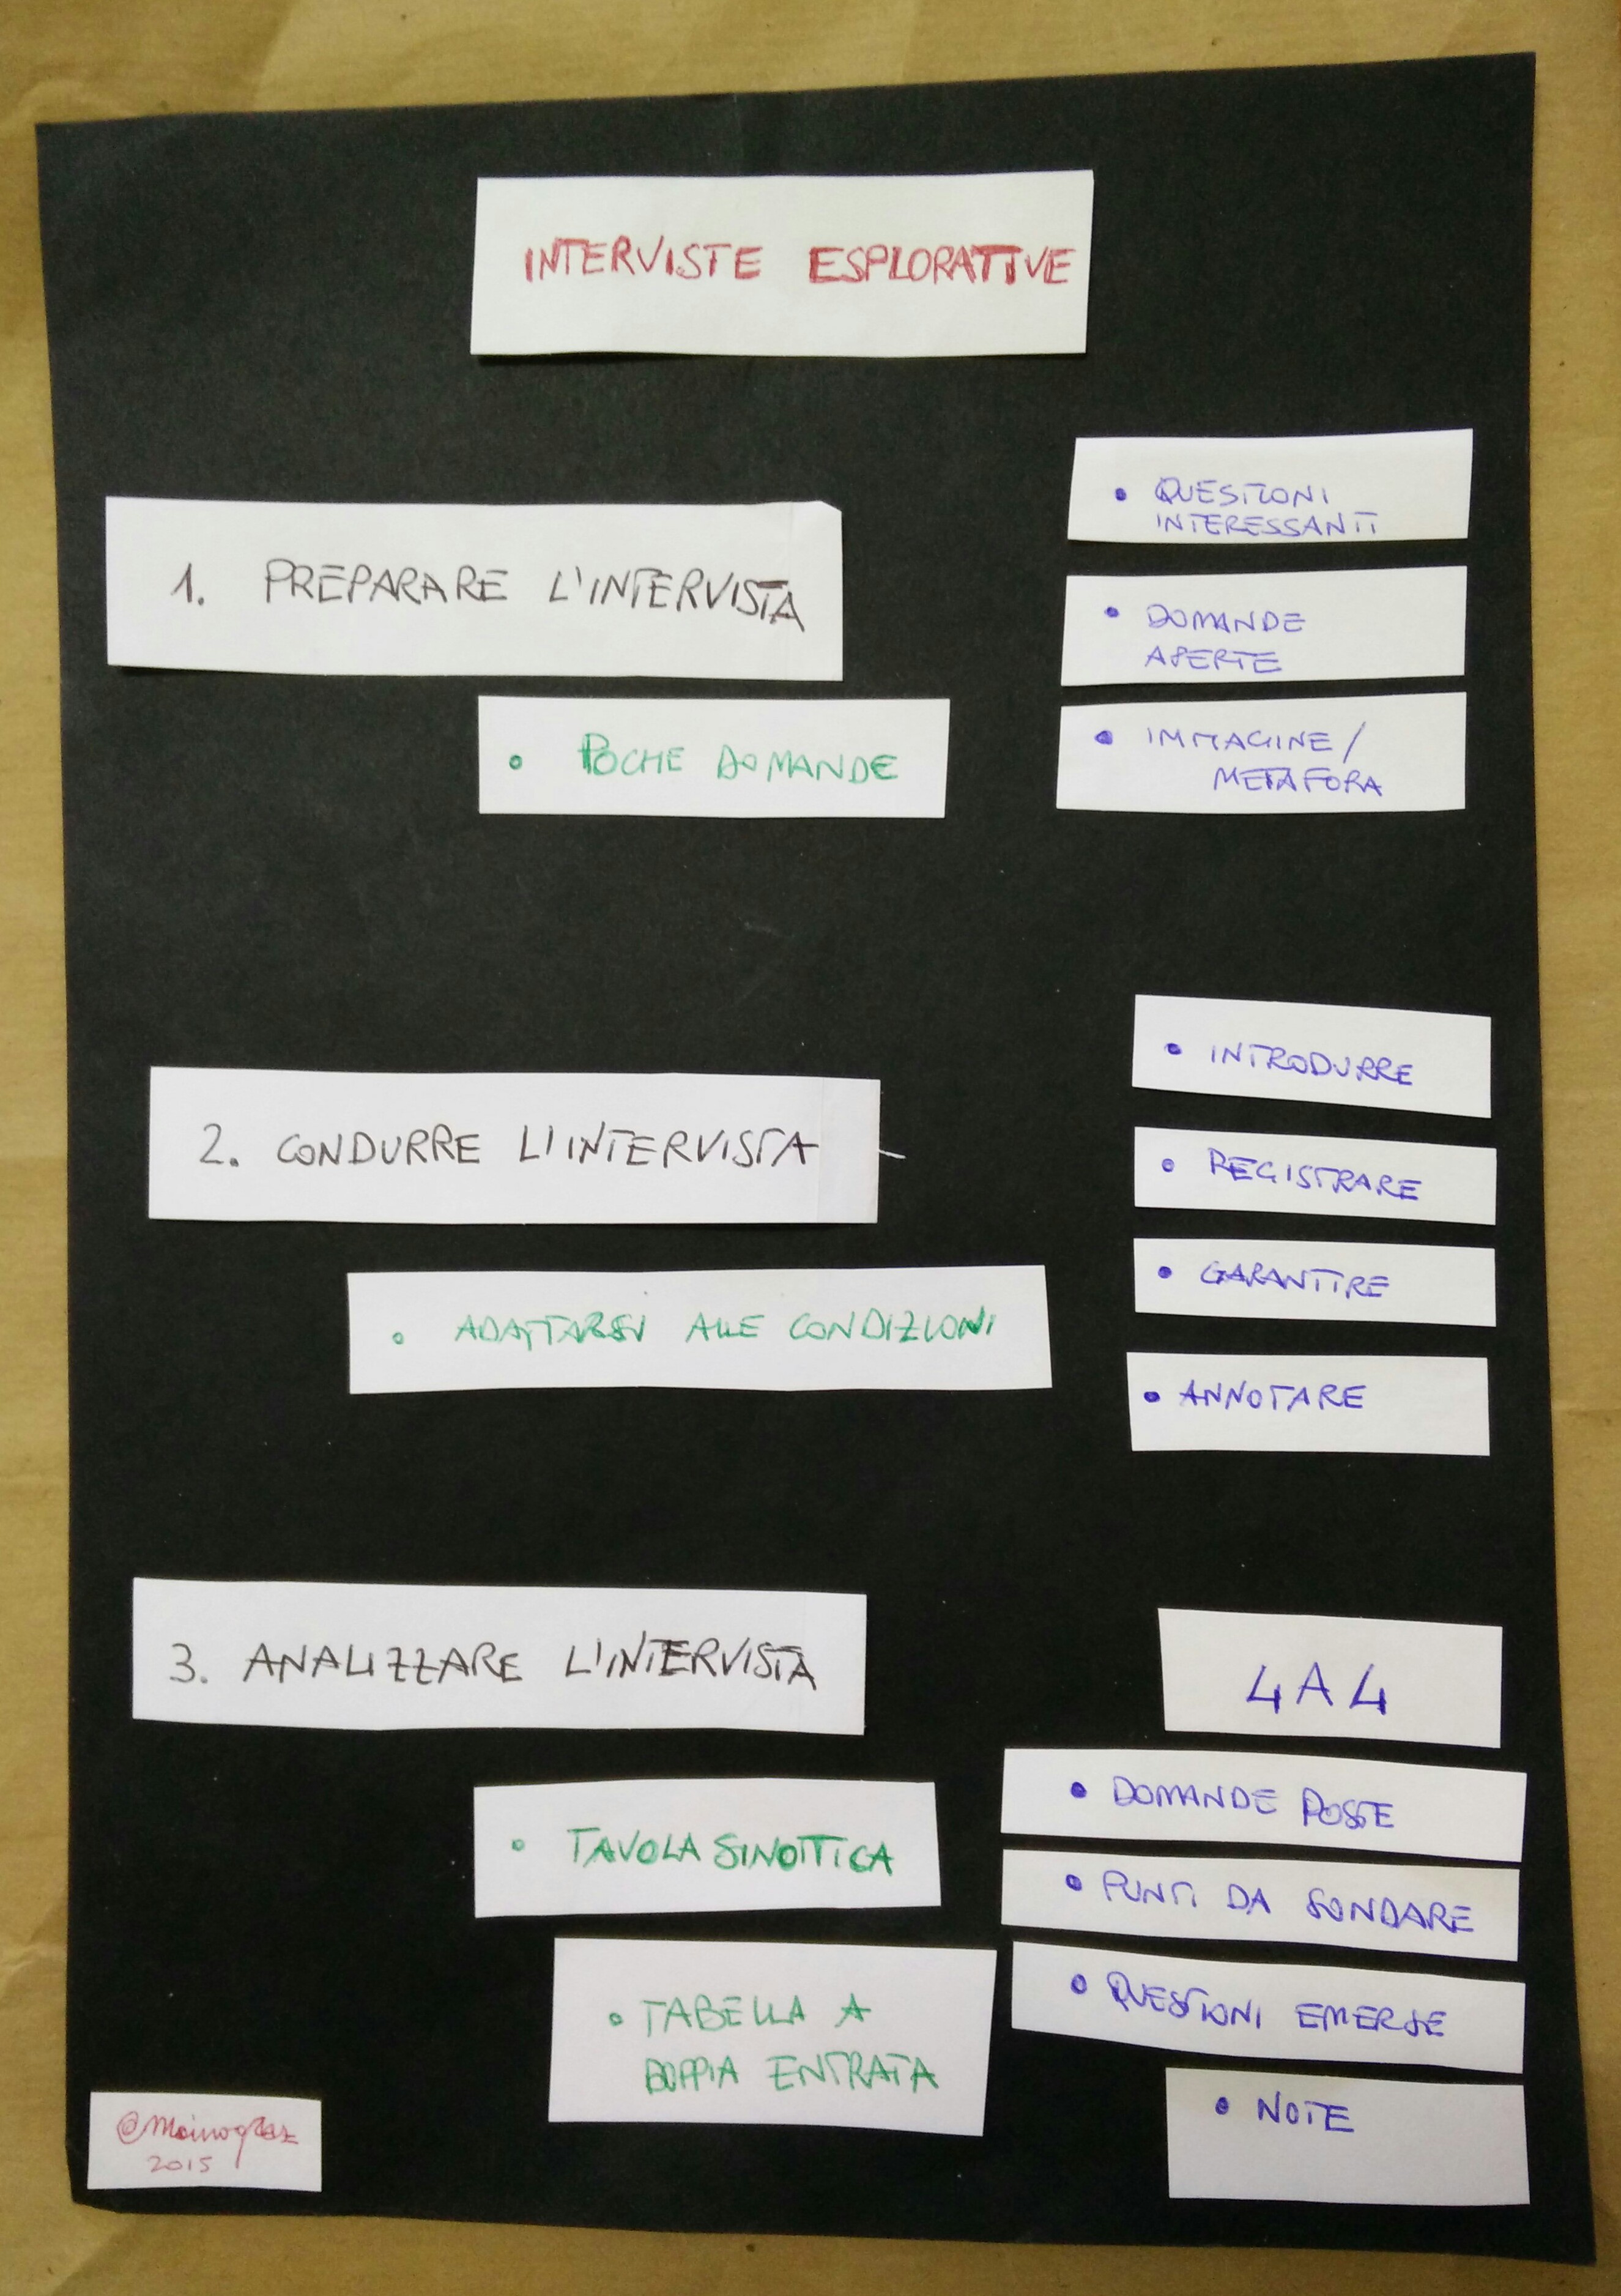 INTERVISTE ESPLORATIVE
1. PREPARARE L'INTERVISTA
• POCHE DOMANDE
• QUESTIONI
INTERESSANTI
• DOMANDE
APERTE
• IMMAGINE /
METAFORA
2. CONDURRE L'INTERVISTA
• ADATTARSI ALLE CONDIZIONI
• INTRODURRE
• REGISTRARE
• GARANTIRE
• ANNOTARE
3. ANALIZZARE L'INTERVISTA
• TAVOLA SINOTTICA
• TABELLA A
DOPPIA ENTRATA
4 A 4
• DOMANDE POSTE
• PUNTI DA SONDARE
• QUESTIONI EMERSE
• NOTE
@Mainograz
2015